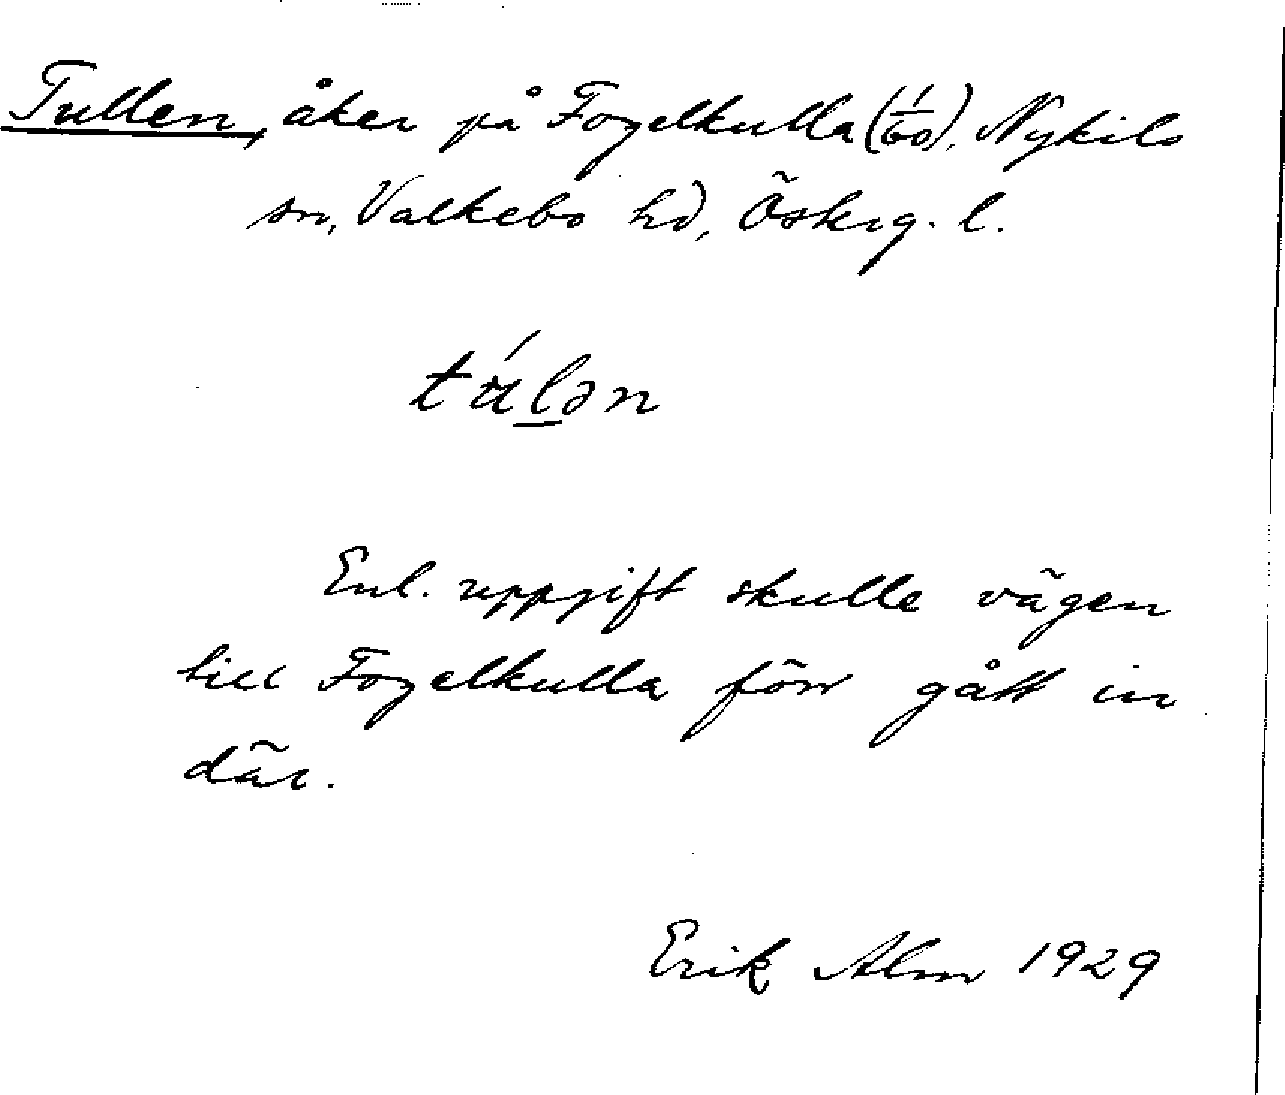 Tullen, åker på Fogelkulla (1/60), Nykils
sn, Valkebo hd, Östrg. l.
tálən
Enl. uppgift skulle vägen
till Fogelkulla förr gått in
där.
Erik Alm 1929